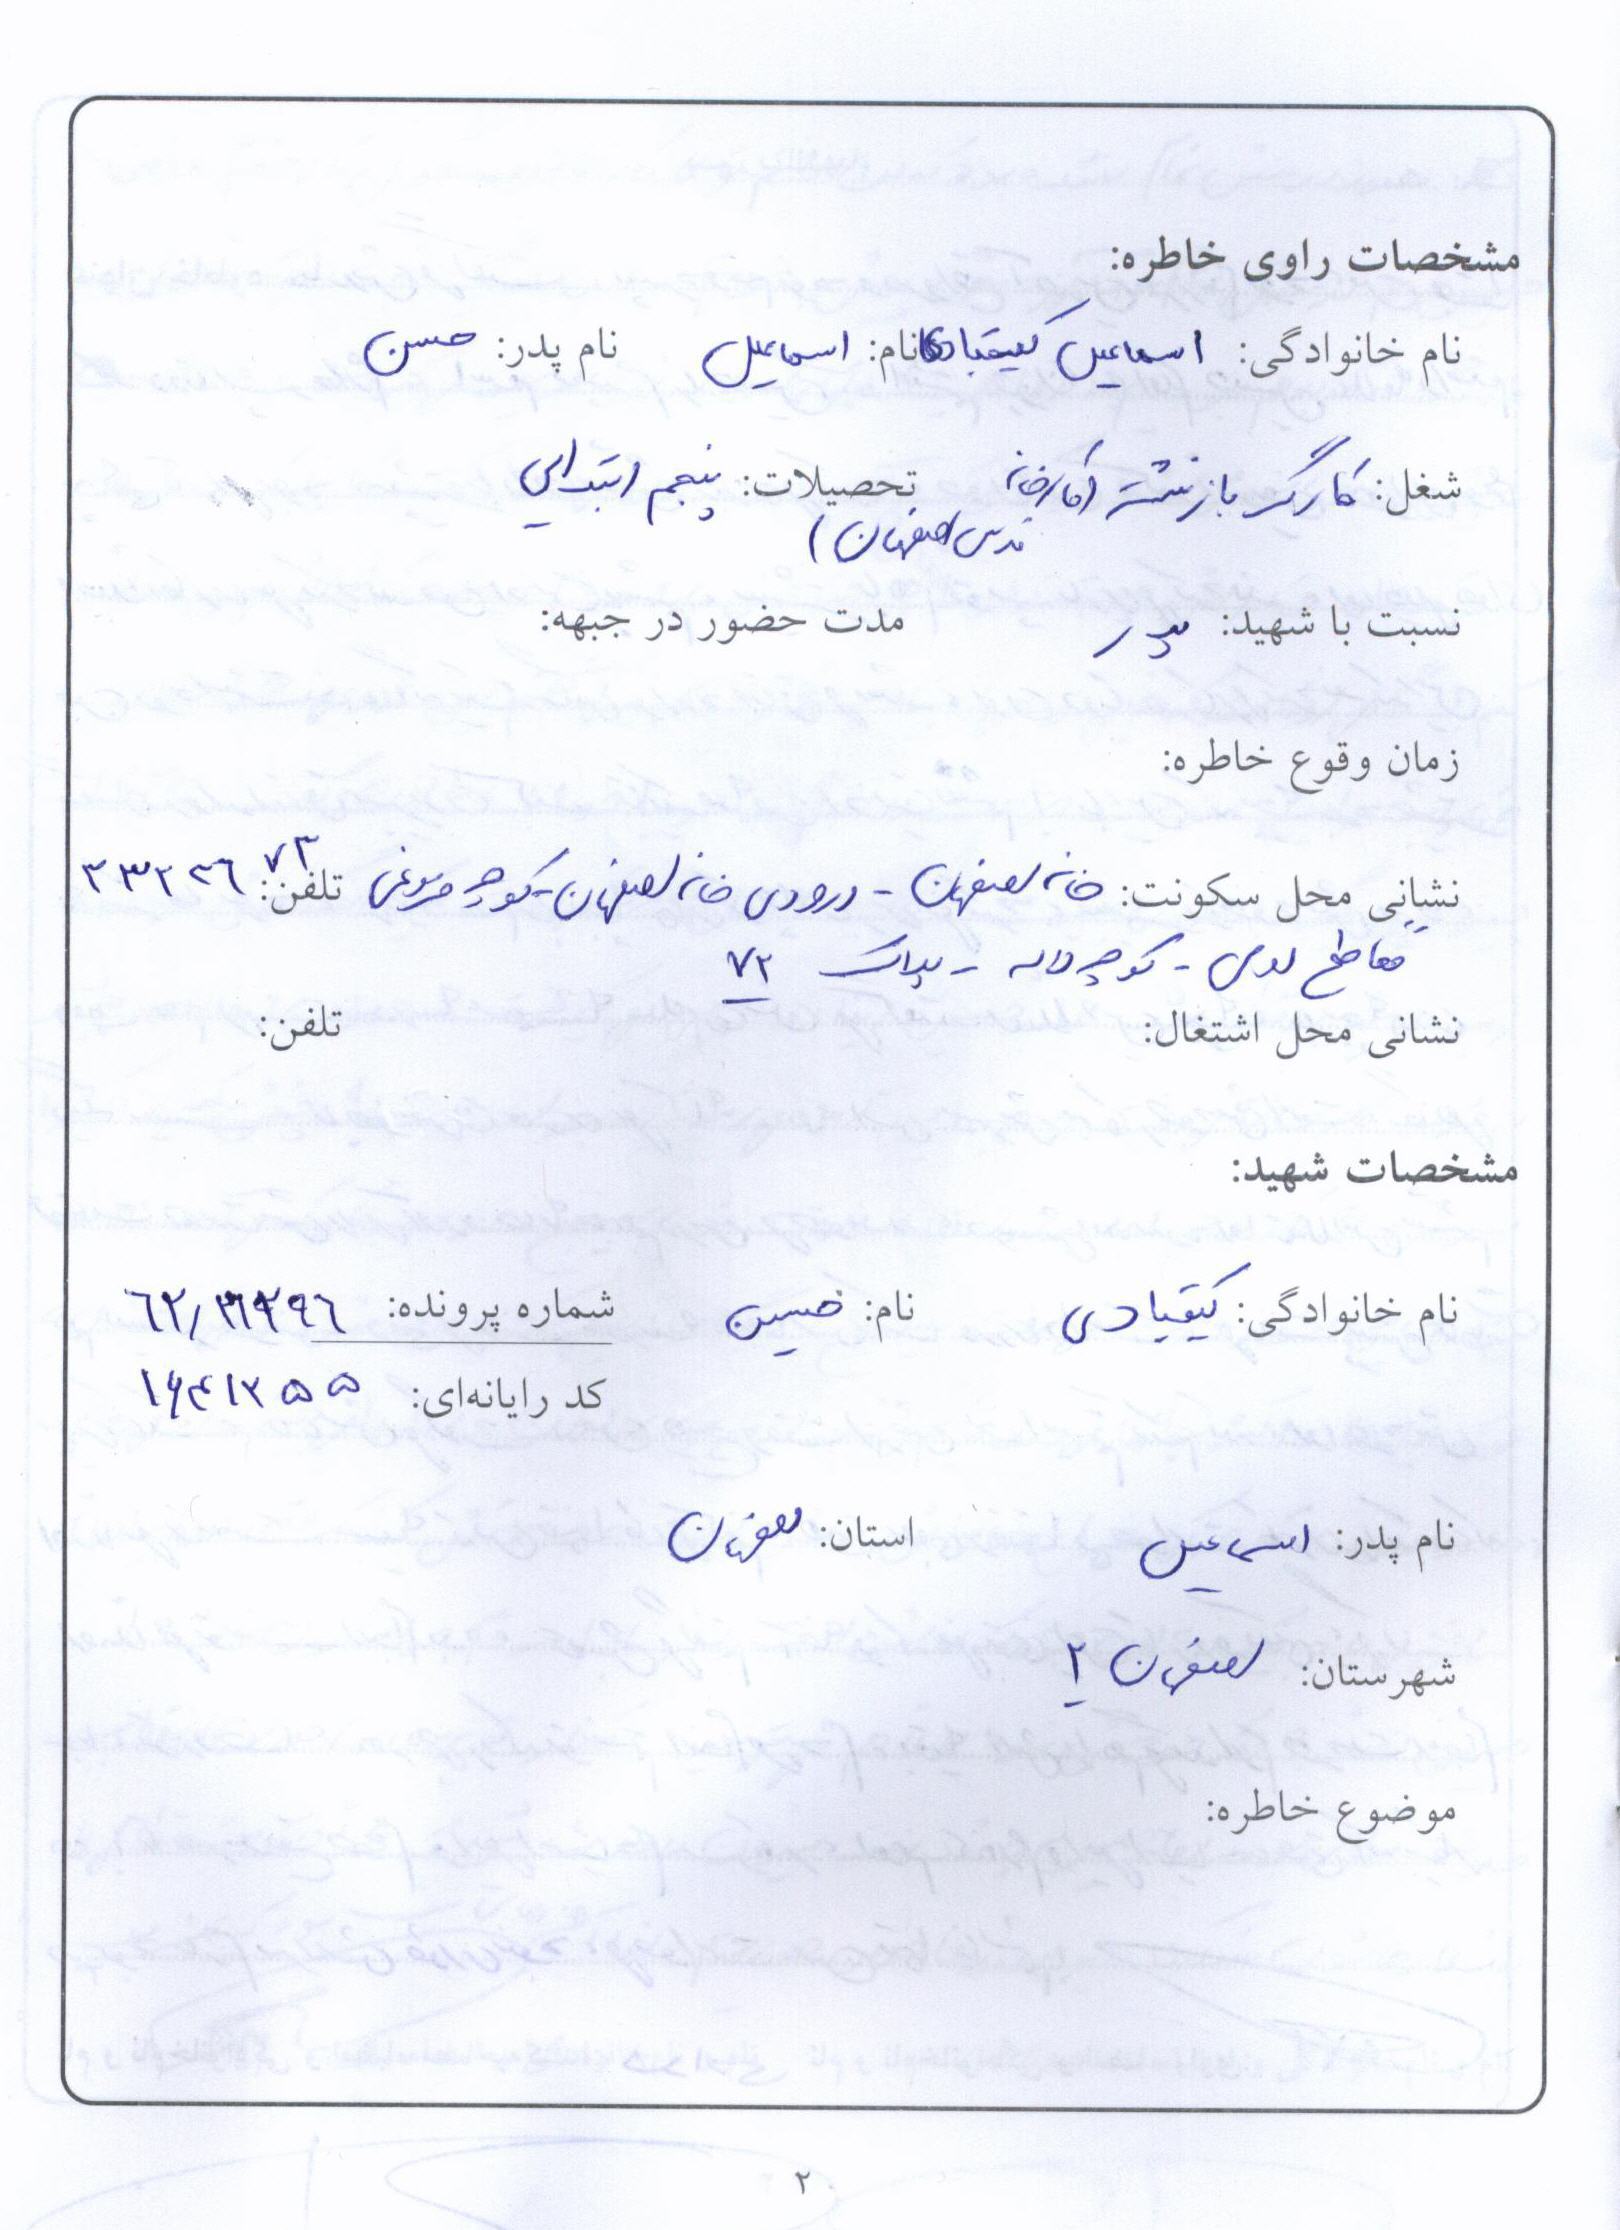 مشخصات راوی خاطره:
نام خانوادگی: اسماعیل کیقبادی نام: اسماعیل نام پدر: حسن
شغل: کارگر بازنشسته (کارخانه تحصیلات: پنجم ابتدایی
قدس اصفهان)
نسبت با شهید: پدر مدت حضور در جبهه:
زمان وقوع خاطره:
نشانی محل سکونت: خانه اصفهان - ورودی خانه اصفهان - کوچه تلفن:
کوچه لاله - پلاک ۷۲
نشانی محل اشتغال: تلفن:
مشخصات شهید:
نام خانوادگی: کیقبادی نام: حسین شماره پرونده:
کد رایانه‌ای: ۱۶۴۱۳۵۵
نام پدر: اسماعیل استان: اصفهان
شهرستان: اصفهان ۲
موضوع خاطره:
۲